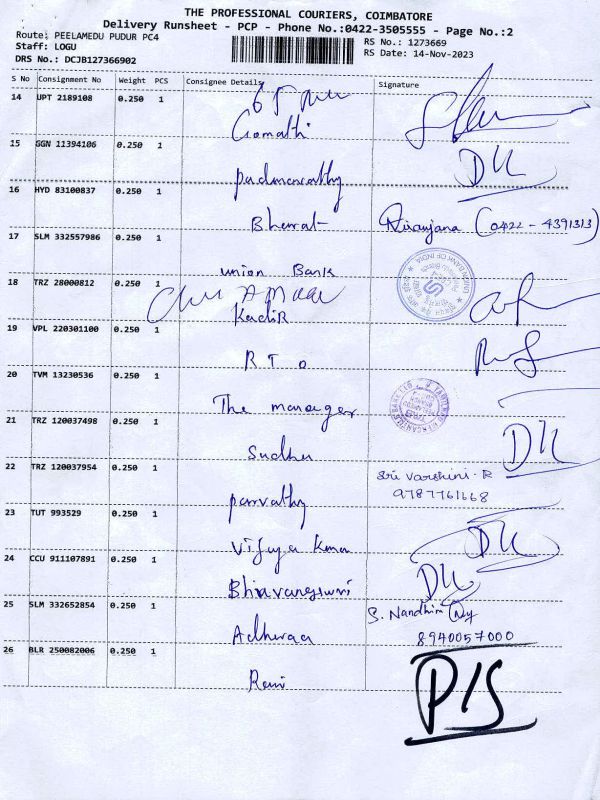 THE PROFESSIONAL COURIERS, COIMBATORE
Delivery Runsheet - PCP - Phone No.:0422-3505555 - Page No.:2
Route: PEELAMEDU PUDUR PC4
Staff: LOGU
DRS No.: DCJB127366902
RS No.: 1273669
RS Date: 14-Nov-2023
S No Consignment No Weight PCS Consignee Details Signature
14 UPT 2189108 0.250 1
Gomathi
15 GGN 11394106 0.250 1 DL
padmavathy
16 HYD 83100837 0.250 1
Bharat Niranjana (0422 - 4391313)
17 SLM 332557986 0.250 1
union Bank
18 TRZ 28000812 0.250 1
Kadir
19 VPL 220301100 0.250 1
RTO
20 TVM 13230536 0.250 1
The manager
21 TRZ 120037498 0.250 1 DL
Sudha
22 TRZ 120037954 0.250 1 Sri Varshini.R
9787761668
parvathy
23 TUT 993529 0.250 1 DL
Vijaya Kumar
24 CCU 911107891 0.250 1 DL
Bhuvaneswari
25 SLM 332652854 0.250 1 S. Nandhini
8940057000
26 BLR 250082006 0.250 1 P/S
Ravi